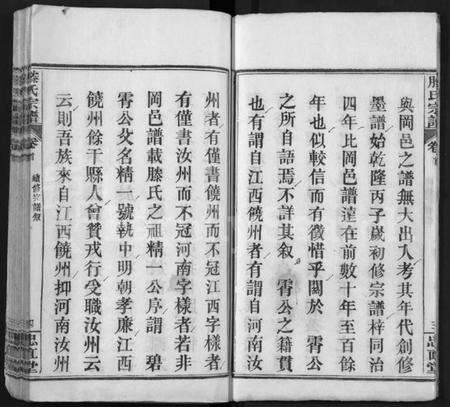 滕氏宗譜 卷首
與岡邑之譜無大出入考其年代創修
墨譜始乾隆丙子歲初修宗譜梓同治
四年比岡邑譜達在前數十年至百餘
年也似較信而有徵惜乎關於 霄公
之所自語焉不詳其叙 霄公之籍貫
也有謂自江西饒州者有謂自河南汝
州者有僅書饒州而不冠江西字樣者
有僅書汝州而不冠河南字樣者若非
岡邑譜載滕氏之祖精一公序謂 碧
霄公父名精一號執中明朝孝廉江西
饒州餘干縣人會贊戎行受職汝州云
云則吾族來自江西饒州抑河南汝州
滕氏宗譜 卷首